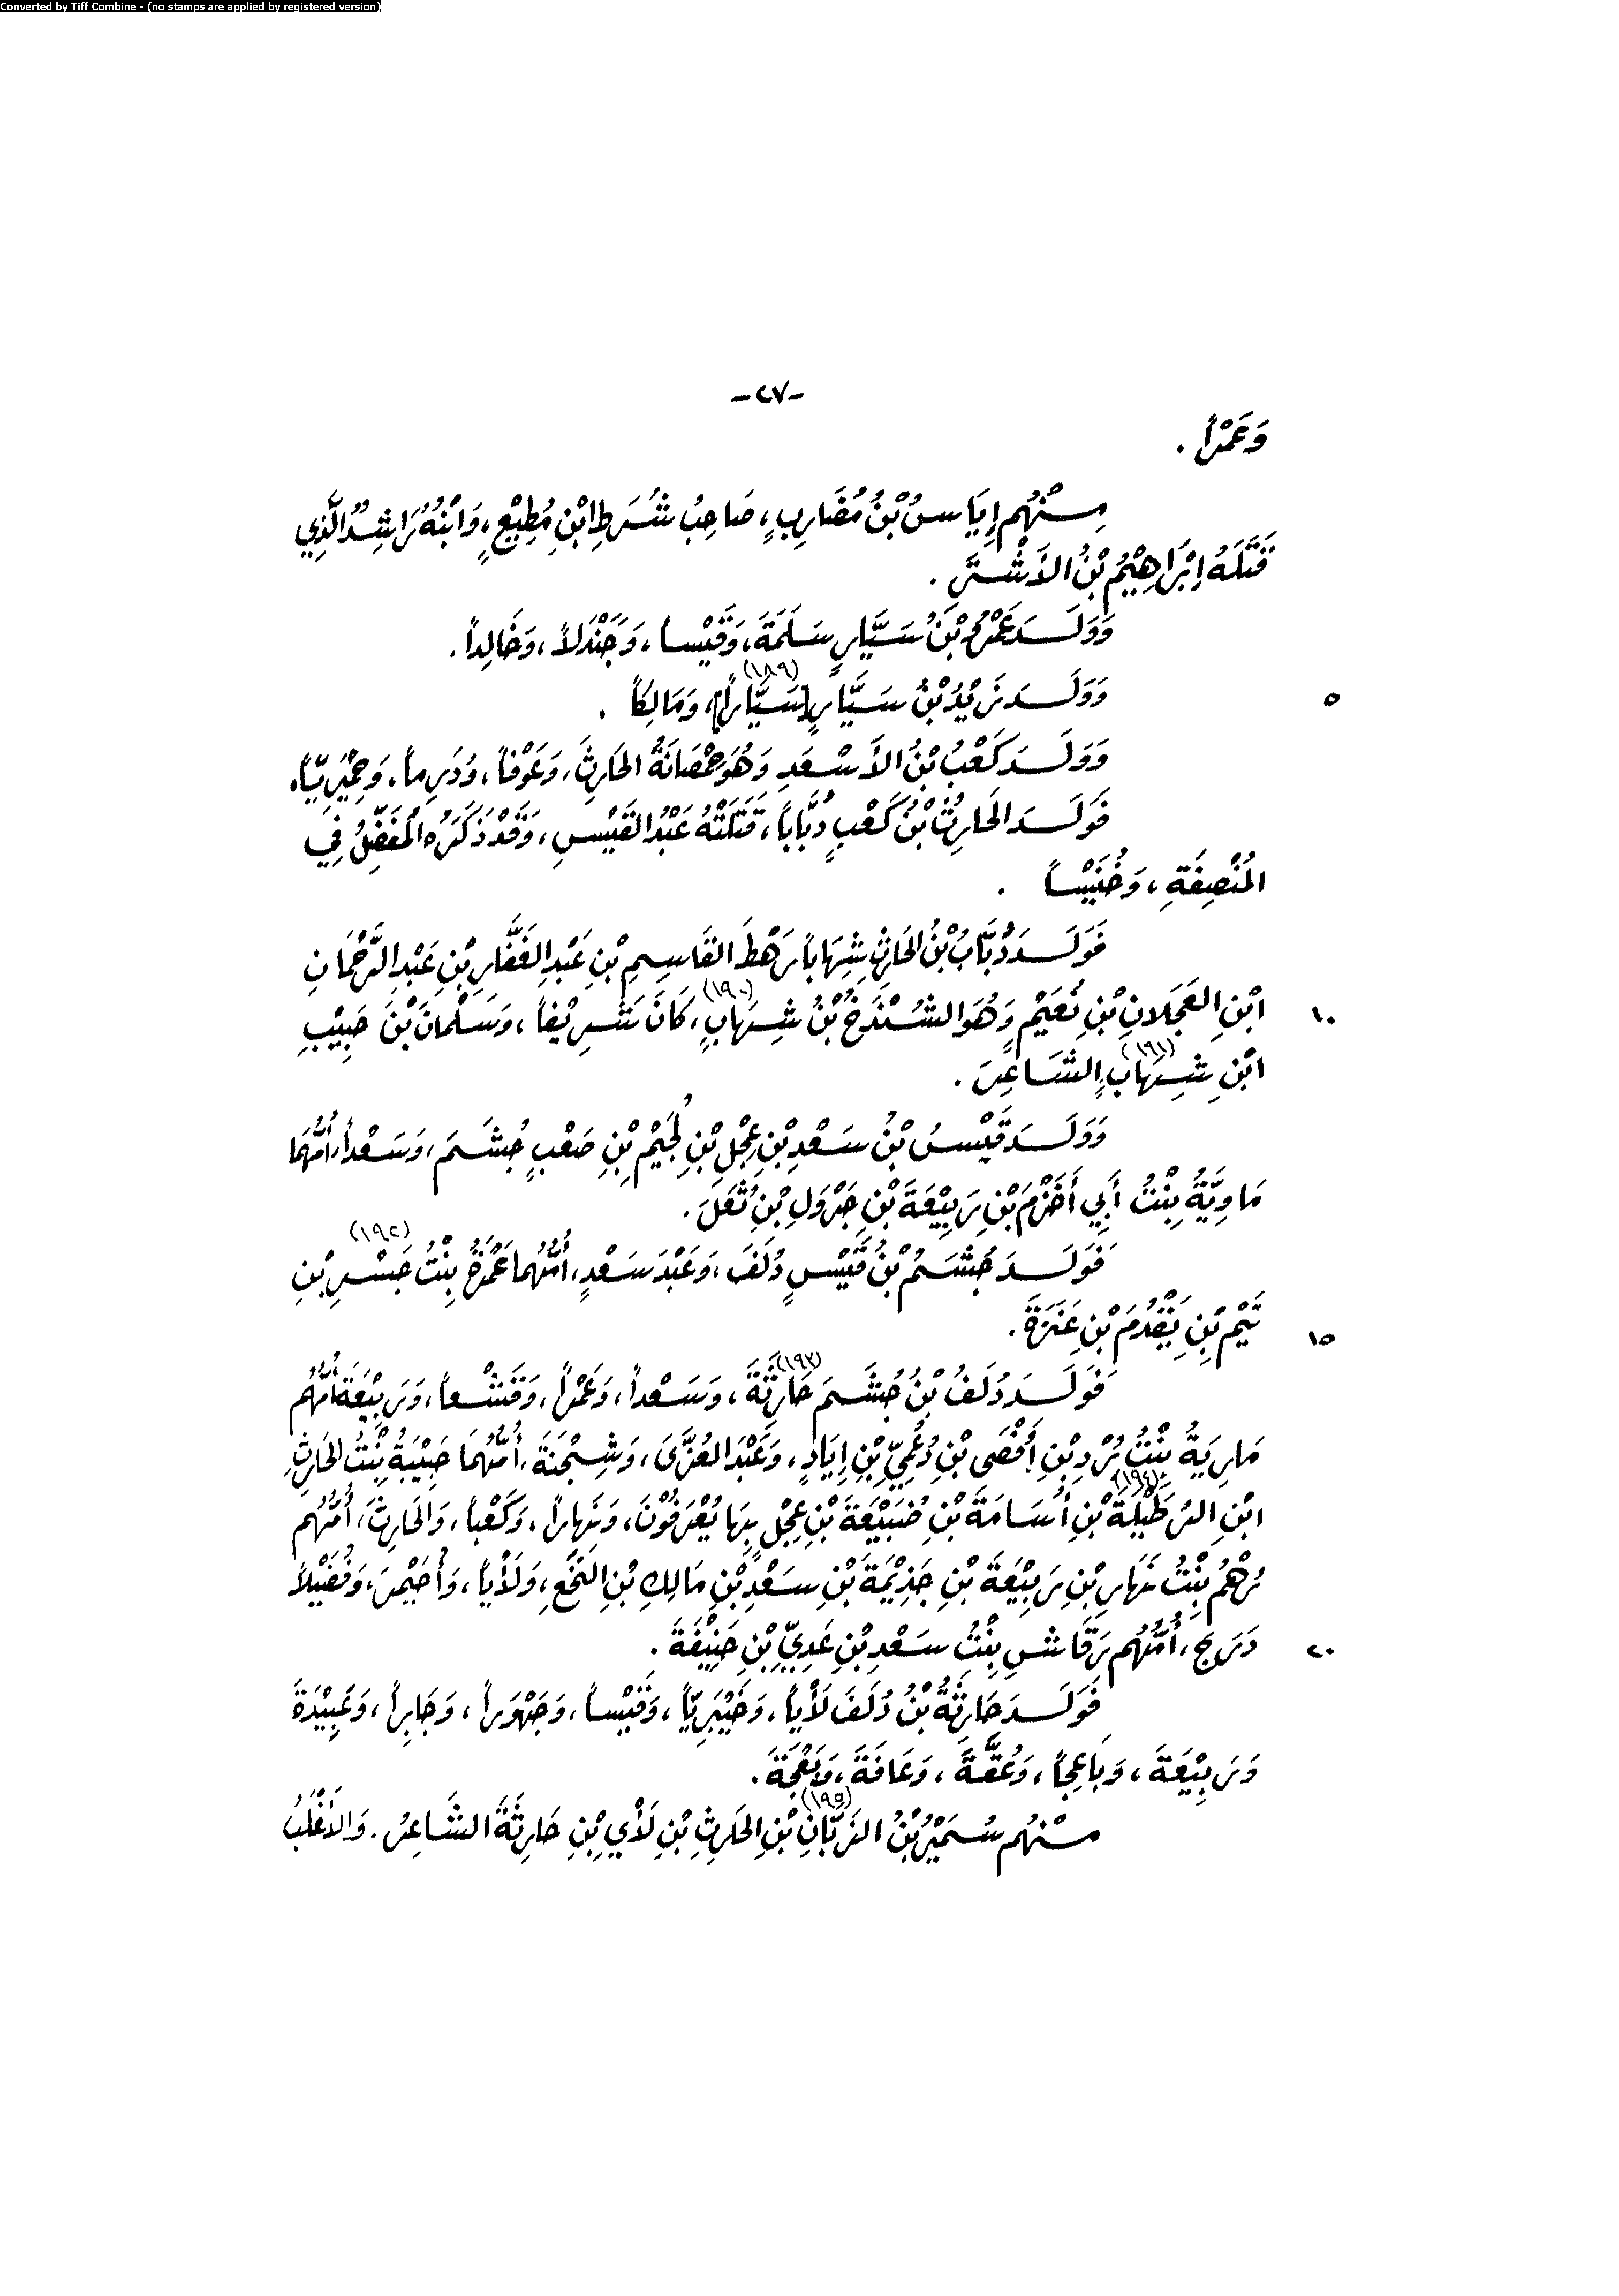 Converted by Tiff Combine - (no stamps are applied by registered version)
-٢٧-
وَعَمْراً .
مِنْهُم إِيَاسُ بْنُ مُضَارِبٍ، صَاحِبُ شُرَطِ ابْنِ مُطِيْعٍ، وَابْنُهُ رَاشِدُ الَّذِي
قَتَلَهُ إِبْرَاهِيْمُ بْنُ الأَشْتَرِ .
وَوَلَدَ عَمْرُو بْنُ سَيَّارٍ سَلَمَةَ، وَقَيْساً، وَجَنْدَلاً، وَخَالِداً .
٥ وَوَلَدَ زَيْدُ بْنُ سَيَّارٍ [سَيَّاراً] (١٨٩)، وَمَالِكاً .
وَوَلَدَ كَعْبُ بْنُ الأَسْعَدِ وَهُوَ حُمْصَانَةُ الحَارِثَ، وَعَوْفاً، وَدَرِماً، وَحِمْيَرِيّاً،
فَوَلَدَ الحَارِثُ بْنُ كَعْبٍ دُبَّاباً، قَتَلَتْهُ عَبْدُ القَيْسِ، وَقَدْ ذَكَرَهُ المُفَضَّلُ فِي
المُنْصِفَةِ، وَخُنَيْساً .
فَوَلَدَ دُبَّابُ بْنُ الحَارِثِ شِهَاباً رَهْطَ القَاسِمِ بْنِ عَبْدِ الغَفَّارِ بْنِ عَبْدِ الرَّحْمَانِ
١٠ ابْنِ العَجَلانِ بْنِ نُعَيْمٍ وَهُوَ الشُنْدَخُ بْنُ شِهَابٍ (١٩٠)، كَانَ شَرِيْفاً، وَسَلْمانَ بْنَ حَبِيْبِ
ابْنِ شِهَابٍ (١٩١) الشَاعِرَ .
وَوَلَدَ قَيْسُ بْنُ سَعْدِ بْنِ عِجْلِ بْنِ لُجَيْمِ بْنِ صَعْبٍ جُشَمَ، وَسَعْداً، أُمُّهُمَا
مَاوِيَّةُ بِنْتُ أَبِي أَخْزَمَ بْنِ رَبِيْعَةَ بْنِ جَرْوَلِ بْنِ ثُعَلَ .
فَوَلَدَ جُشَمُ بْنُ قَيْسٍ دُلَفَ، وَعَبْدَ سَعْدٍ، أُمُّهُما عَمْرَةُ بِنْتُ جَسْرِ (١٩٢) بْنِ
١٥ تَيْمِ بْنِ يَقْدُمَ بْنِ عَنَزَةَ .
فَوَلَدَ دُلَفُ بْنُ جُشَمَ حَارِثَةَ (١٩٣)، وَسَعْداً، وَعَمْراً، وَقَشْعاً، وَرَبِيْعَةَ أُمُّهُم
مَارِيَةُ بِنْتُ بُرْدِ بْنِ أَفْصَى بْنِ دُعْمِيِّ بْنِ إِيَادٍ، وَعَبْدَ العُزَّىَ، وَشِجْنَةَ، أُمُّهُمَا حَبِيْبَةُ بِنْتُ الحَارِثِ
ابْنِ الرَطَيْلَةِ (١٩٤) بْنِ أُسَامَةَ بْنِ ضُبَيْعَةَ بْنِ عِجْلٍ بِهَا يُعْرَفُوْنَ، وَنَهاراً، وَكَعْباً، وَالحَارِثَ، أُمُّهُم
رُهْمُ بِنْتُ نَهَارِ بْنِ رَبِيْعَةَ بْنِ جَذِيْمَةَ بْنِ سَعْدِ بْنِ مَالِكِ بْنِ النَّخَعِ، وَلَأْياً، وَأُحَيْمِرَ، وَفُضَيْلاً
٢٠ دَرَجَ، أُمُّهُم رَقَاشِ بِنْتُ سَعْدِ بْنِ عَدِيِّ بْنِ حَنِيْفَةَ .
فَوَلَدَ حَارِثَةُ بْنُ دُلَفَ لَأْياً، وَخَيْبَرِيّاً، وَقَيْساً، وَجَهْوَراً، وَجَابِراً، وَعَبِيْدَةَ
وَرَبِيْعَةَ، وَبَاعِجاً، وَعُقَّةَ، وَعَافَةَ، وَبَعْجَةَ .
مِنْهُم سُمَيْرُ بْنُ الزَبَّانِ (١٩٥) بْنِ الحَارِثِ بْنِ لَأْيِ بْنِ حَارِثَةَ الشَاعِرُ . وَالأَغْلَبُ